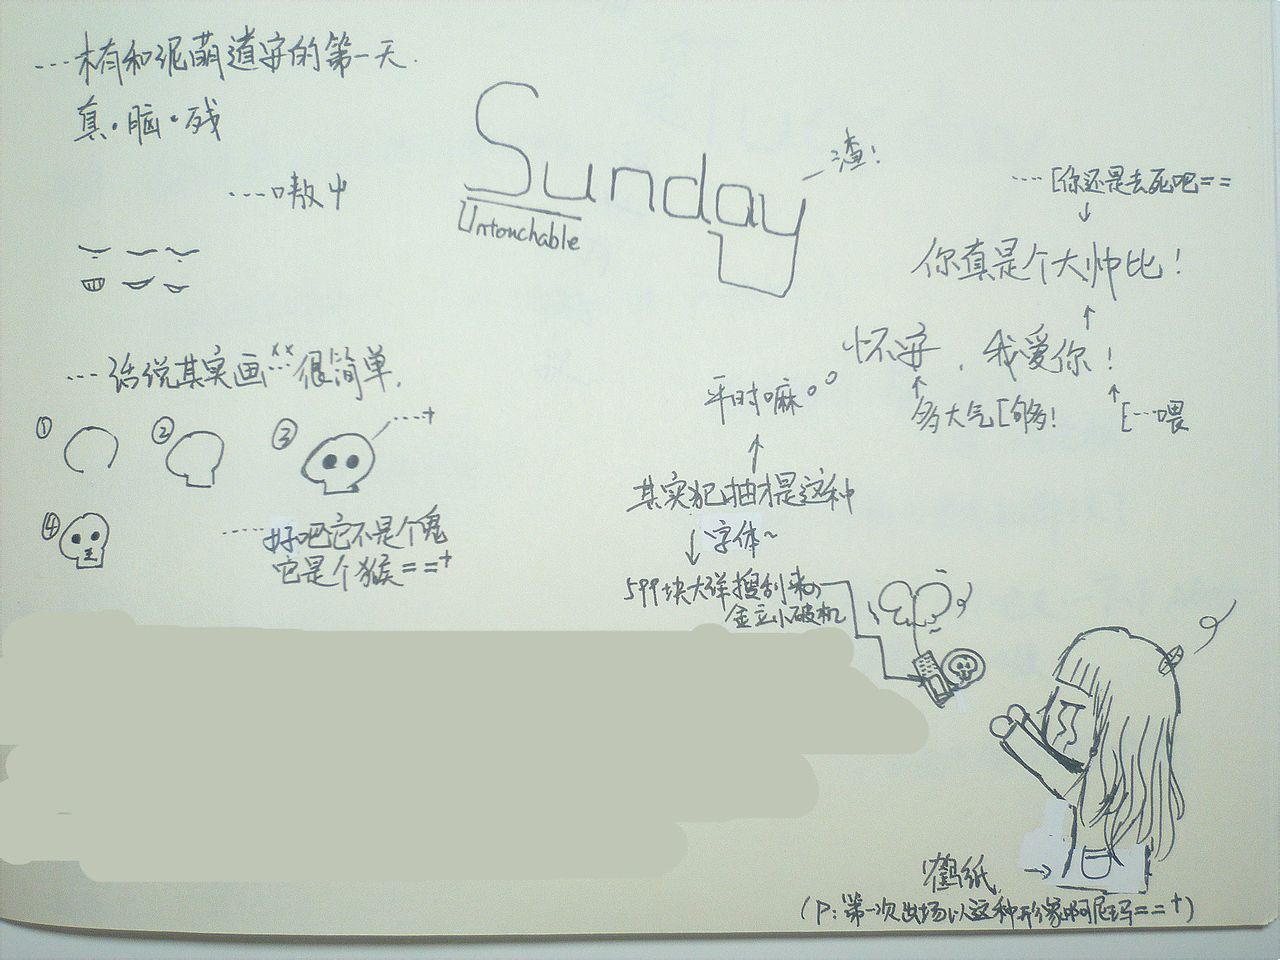 …木有和泥萌道安的第一天.
真·脑·残
…嗷屮
Sunday
Untouchable
—渣!
…[你还是去死吧==
↓
你真是个大帅比!
↑
怀安,我爱你!
平时嘛。。
↑
多大气[够多!
↑
[…喂
↑
其实犯抽才是这种
字体~
↓
599块大洋搜刮来的
金立小破机
…话说其实画××…很简单.
① ② ③ …+
④
…好吧它不是个鬼
它是个猴==+
鹤纸→
(P:第一次出场以这种形象啊尼玛==+)